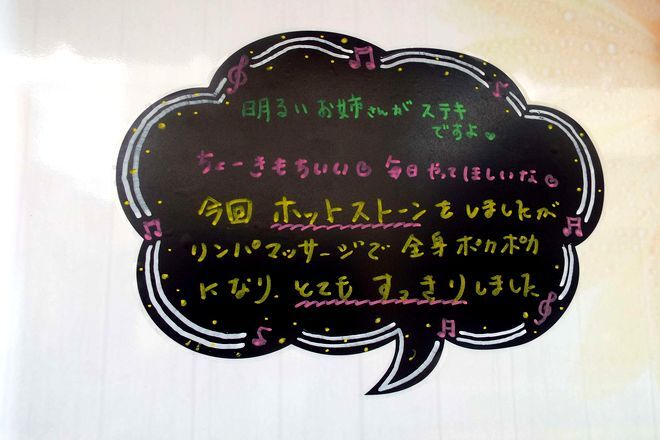 明るいお姉さんが ステキ
ですよ
ちょーきもちいい 毎日やってほしいな
今回 ホットストーンをしましたが
リンパマッサージで 全身ポカポカ
になり、とても すっきりしました